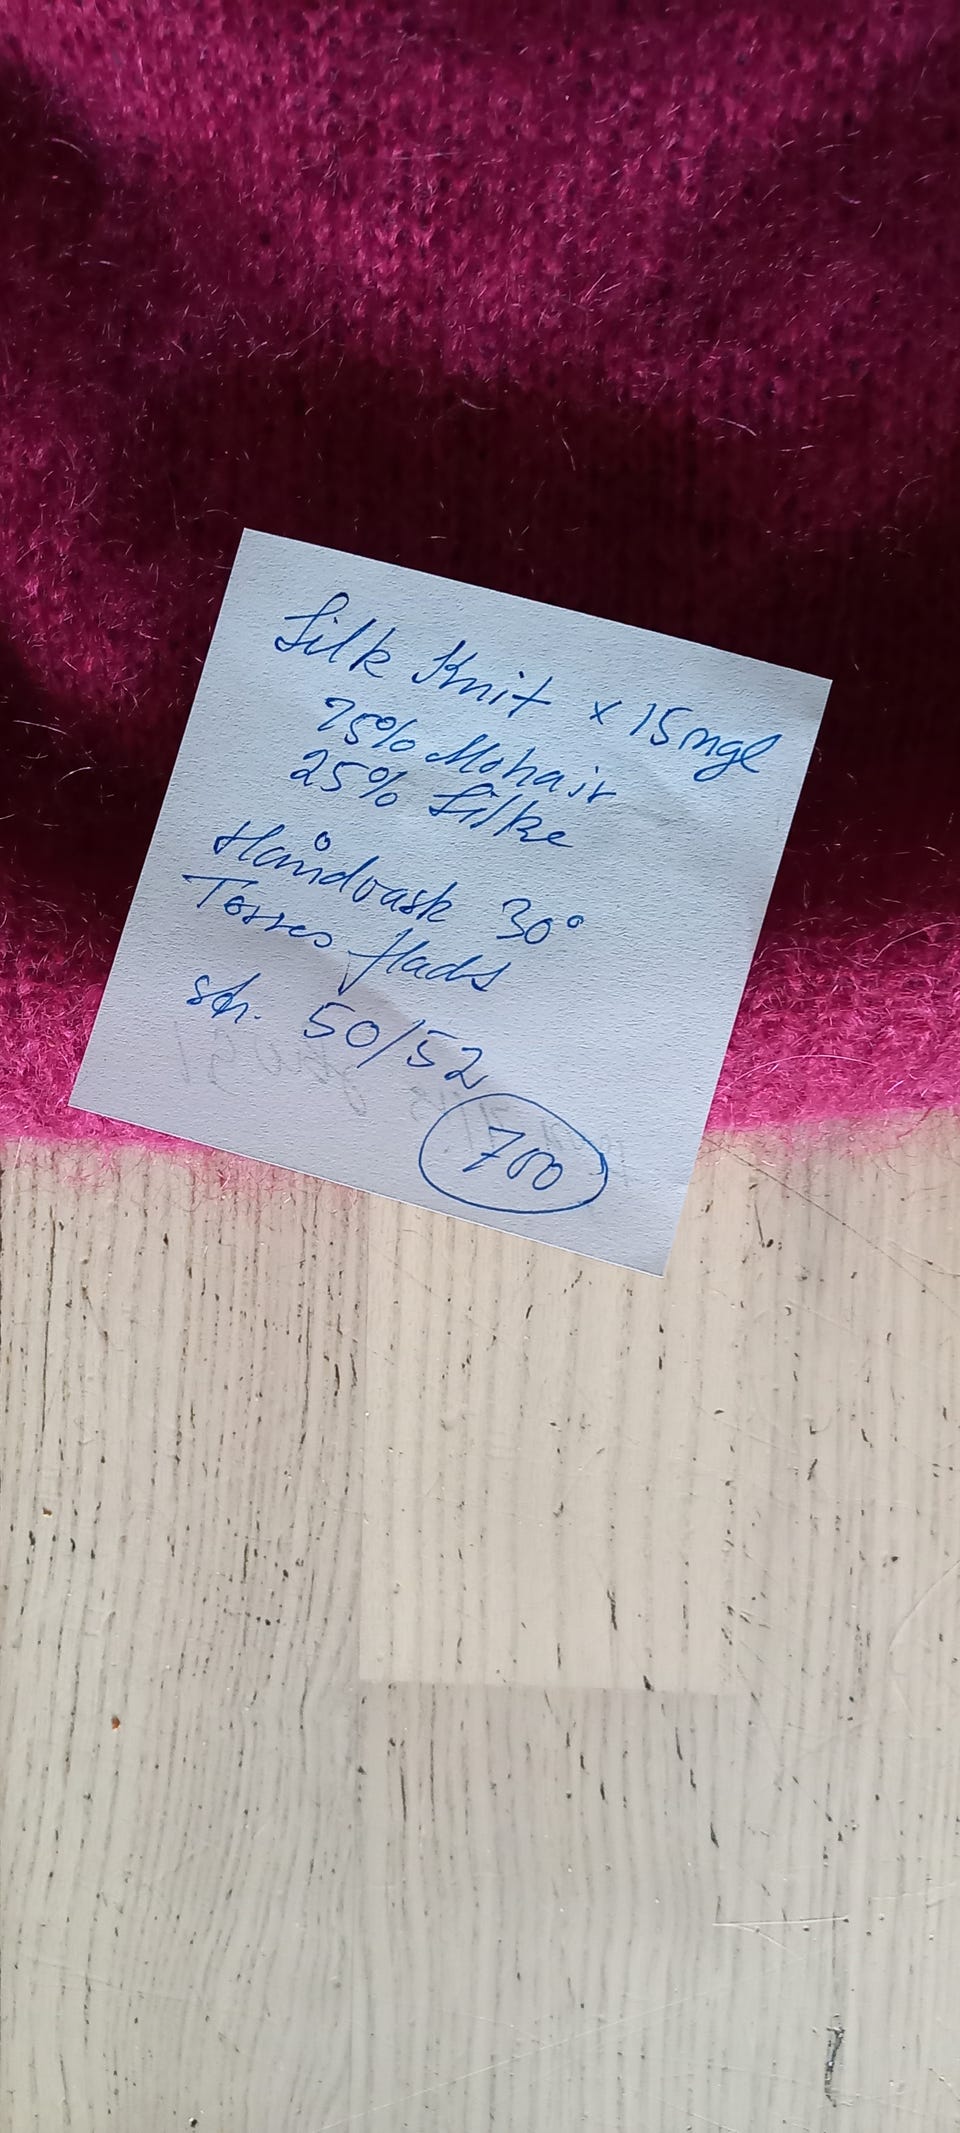 Silk Knit x 15 ngl
75% Mohair
25% Silke
Håndvask 30°
Tørres fladt
str. 50/52
700